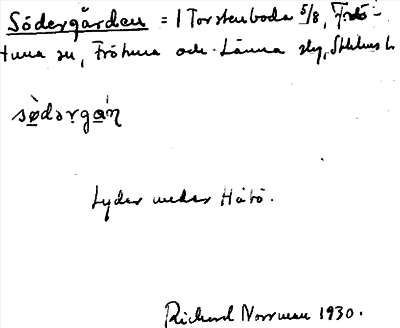 Södergården = 1 Torstenboda 5/8, Frö-
tuna sn, Fröhuna och Länna slg, Sthlms l.
södərgɑ̀n
Lyder under Håtö.
Richard Norrman 1930.